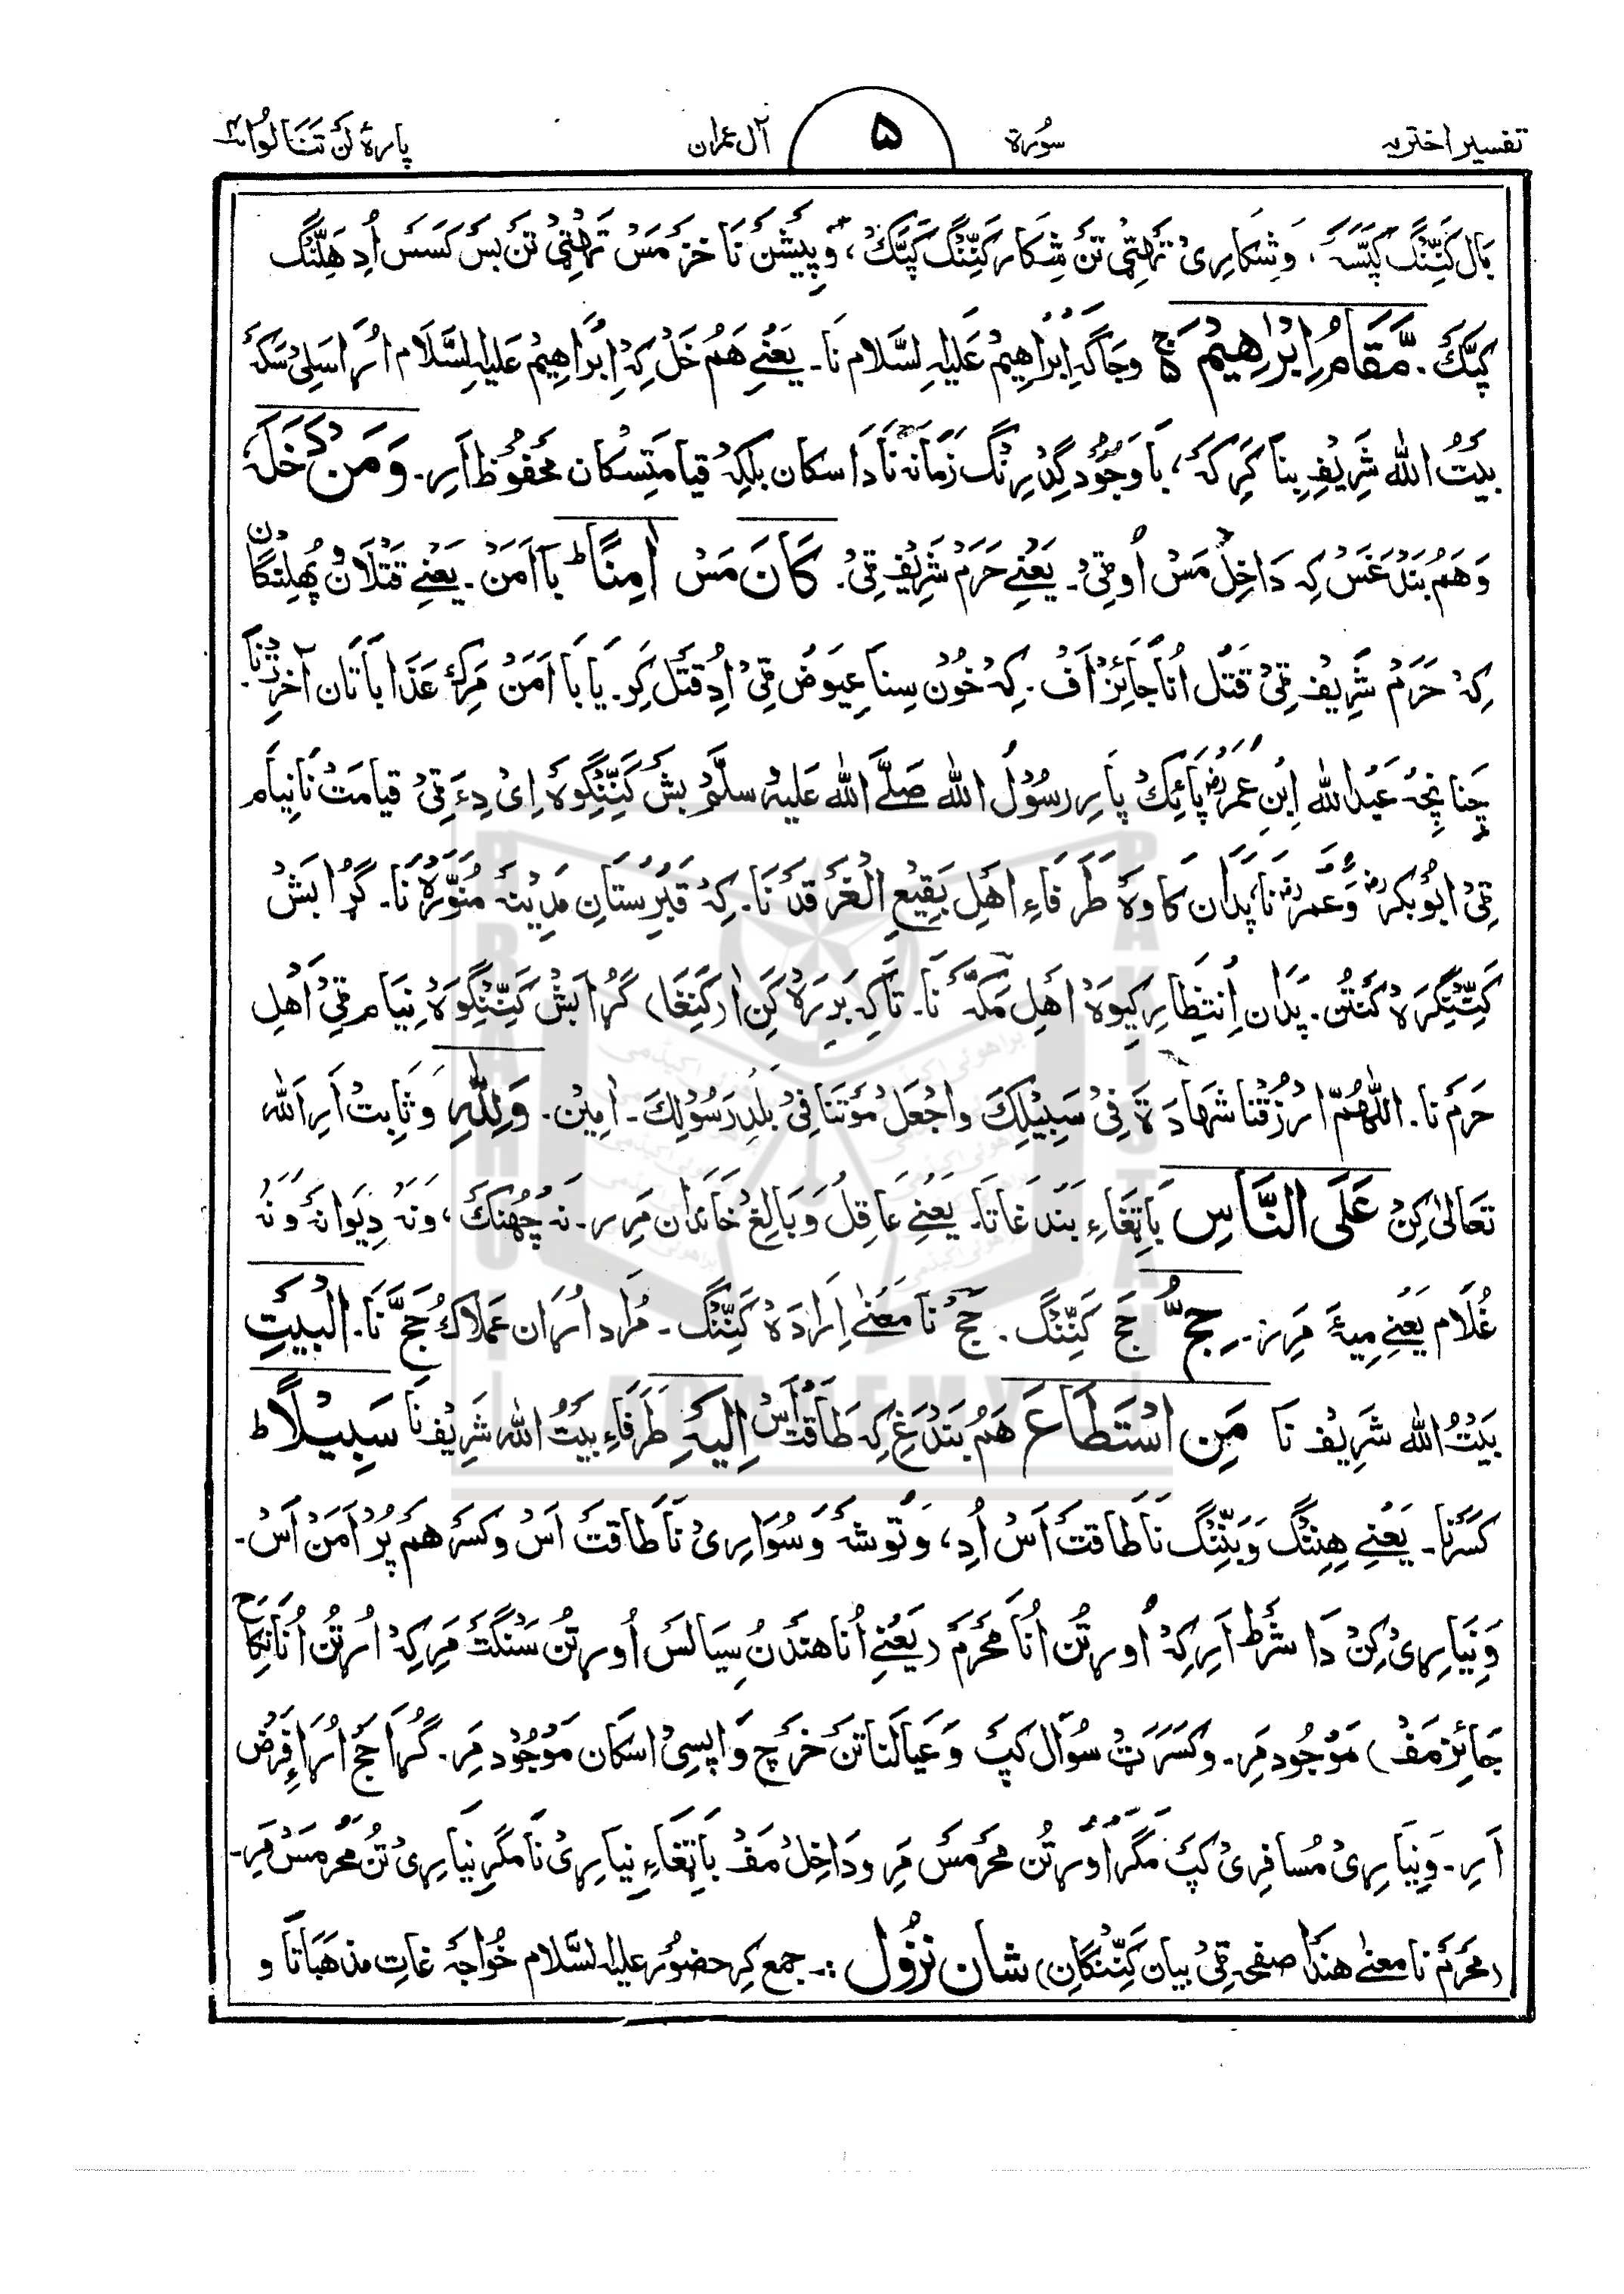 تفسیر اختریہ
سُورۃ
۵
آل عمران
پارہٴ لن تَنَالُوا ۴
بَال کَنِّنگ کپّسَہ، وَشِکارِیْ تہٹی تن شِکار کَنِّنگ کَپَّک، وَپیشَن نَا خزمَسْ تہٹی تن بَس کَسَسْ اُدِ ھِلِّنگ
کپَّک۔ مَّقَامُ اِبْرٰھِیْمَ ۚ وجَاگہِ اِبْرَاھِیْمْ عَلَیہِ لسَّلَام نَا۔ یَعْنِے ھَمْ خَل کِہ اِبْرَاھِیمْ عَلَیہِ لسَّلَام اُرَا سَلِیْ سَکہ
بیتُ اللہ شَرِیفِ بِنَا کَرِکہَ، بَاوَجُوْد گِدِرِنگ زَمَانَہ نَا دَاسکَان بلکِہ قیامَتِسکَان مَحفُوظ اَرِ۔ وَمَنْ دَخَلَہٗ
وَھَمْ بَنْدَغَسْ کِہ دَاخِلْ مَسْ اُوٹی۔ یَعْنِے حَرَمْ شَرِیْف ٹی۔ کَانَ مَسْ اٰمِنًا ط بَااَمَنْ۔ یَعْنِے قَتْلَانْ وپُھلِنگَان
کِہْ حَرَمْ شَرِیْف ٹیْ قَتْل اُنَا جَائِزْ اَفْ۔ کِہْ خُوْن سِنَا عِیوَضْ ٹیْ اُدِ قَتَل کَرِ۔ یَا بَا اَمَنْ مَرِکْ عَذَابَاتَان آخِرَتْ نَا۔
چُنَانچِہْ عَبْدُاللہ اِبْنِ عُمَرْؓ پَائِکْ پَارِ رسُوْلُ اللہ صَلَّے اللہ عَلَیہْ سلَّمْ بَشْ کَنِّنگِوہْ اِیْ دِےٓ ٹیْ قیامَتْ نَا نیَام
ٹی ابُوبکرؓ وَعُمَرؓ نَا، پَدَان کَاوَہْ طَرَفَاءِ اَھْلِ بَقِیْعِ الْغَرْقَدْ نَا۔ کِہْ قَبَرِسْتَانِ مَدِینَہ مُنَوَّرَہْ نَا۔ گُڑَا بَشْ
کَنِّنگِرَہْ کَنتُن۔ پَدَان اِنتِظَارِ کِیوَہْ اھَلِ مَکَّہ نَا۔ تَاکِہ بَرِرَہْ کَنِ ار (کَنِغَا) گُڑَا بَشْ کَنِّنگِوَہْ نِیَام ٹیْ اَھلِ
حَرَمْ نَا۔ اَللّٰھُمَّ ارْزُقْنَا شَھَادَۃً فِیْ سَبِیْلِکَ واجْعَلْ مَوْتَنَا فِیْ بَلَدِ رَسُوْلِکَ۔ اٰمِیْن۔ وَلِلّٰہِ وثَابِتْ اَرِ اَللہ
تَعَالیٰ کِنْ عَلَی النَّاسِ بَاتِغَاءِ بَنْدَغَاتَا۔ یَعْنِے عَاقِلْ وَبَالِغْ خَانْدَان مَرِر۔ نَہ چُھنَاکْ، وَنَہْ دِیْوَانَہ وَنَہْ
غُلَام یَعْنِے مِیہْ مَرِر۔ حِجُّ حَجْ کَنِّنگ۔ حَجْ نَا مَعْنٰے اِرَادَہْ کَنِّنگ۔ مُرَاد اُرَان عَمَلَاکْ حَجّ نَا۔ الْبَیْتِ
بَیْتُ اللہ شَرِیْف نَا مَنِ اسْتَطَاعَ ھَمْ بَنْدَغ کِہ طَاقَتْ اَسْ اِلَیْہِ طَرَفَاءِ بَیتُ اللہ شَرِیْف نَا سَبِیْلًا ط
کَسَرْنَا۔ یَعْنِے ھِنِنگ وَبَنِّنگ نَا طَاقَتْ اَسْ اُدِ، وَتوشَہ وَسُوَارِیْ نَا طَاقَتْ اَسْ وکَسَر ھَم پُرْ اَمَن اَسْ۔
وَنِیَارِیْ کِنْ دَا شَرْط اَرِ کِہْ اُورتُنْ اُنَا مَحْرَمْ (یَعْنِے اُنَا ھَنْدُنْ سِیَالَسْ اُورتُن سَنْگَتْ مَرِ کِہْ اُرتُنْ اُنَا نِکَاح
جَائِزمَفْ) مَوْجُود مَرِ۔ وکَسَرَٹْ سُوَال کَپَ وَعَیَالنَاتَن خَرَچ وَاپِسِیْ اسکَان مَوْجُوْد مَرِ۔ گُڑَا حَجْ اُرَا فِرَضْ
اَرِ۔ وَنِیَارِیْ مُسَافِرِیْ کَپَ مَگَر اُورتُن مَحْرَمَسْ مَرِ ودَاخِلْ مَفْ بَاتِغَاءِ نِیَارِیْ نَا مَگَر نِیَارِیْ تُن مَحْرَمَسْ مَرِ۔
(مَحْرَمْ نَا مَعْنٰے ھَنْدَا صفحہ ٹیْ بیَان کَنِّنگَانِ) شان نزُول :۔ جمع کَرِ حضُوْر عَلیہِ لسَّلَام خُوَاجَہ غَاتِ مَذْھَبَاتَا و